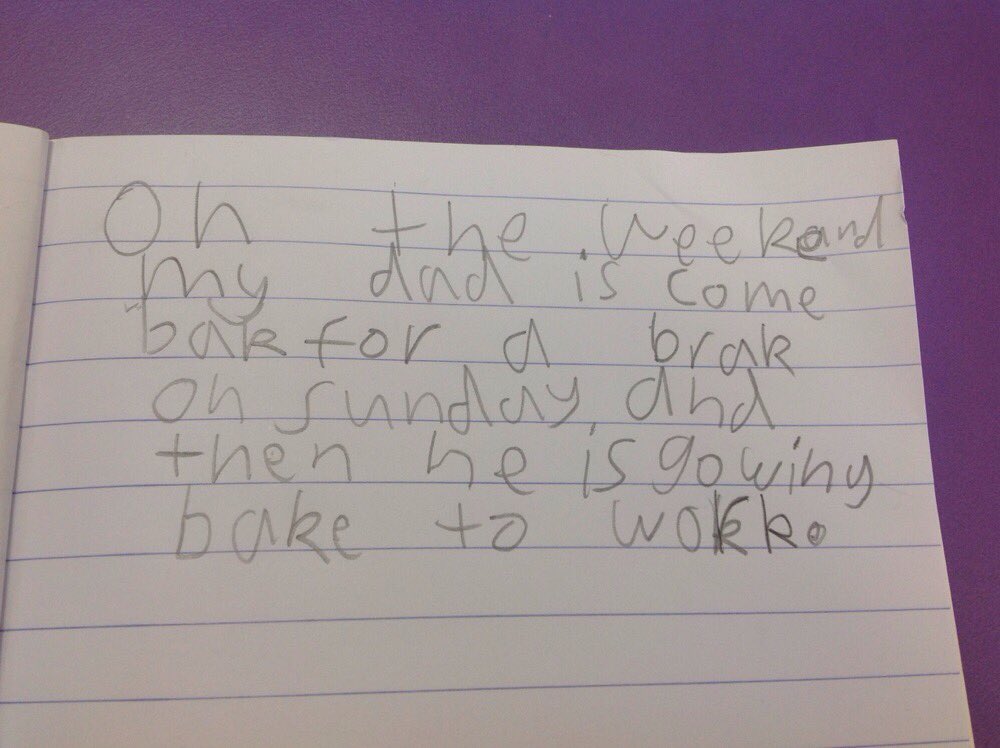 On the weekend
my dad is come
bak for a brak
on sunday and
then he is gowing
bake to wokk.